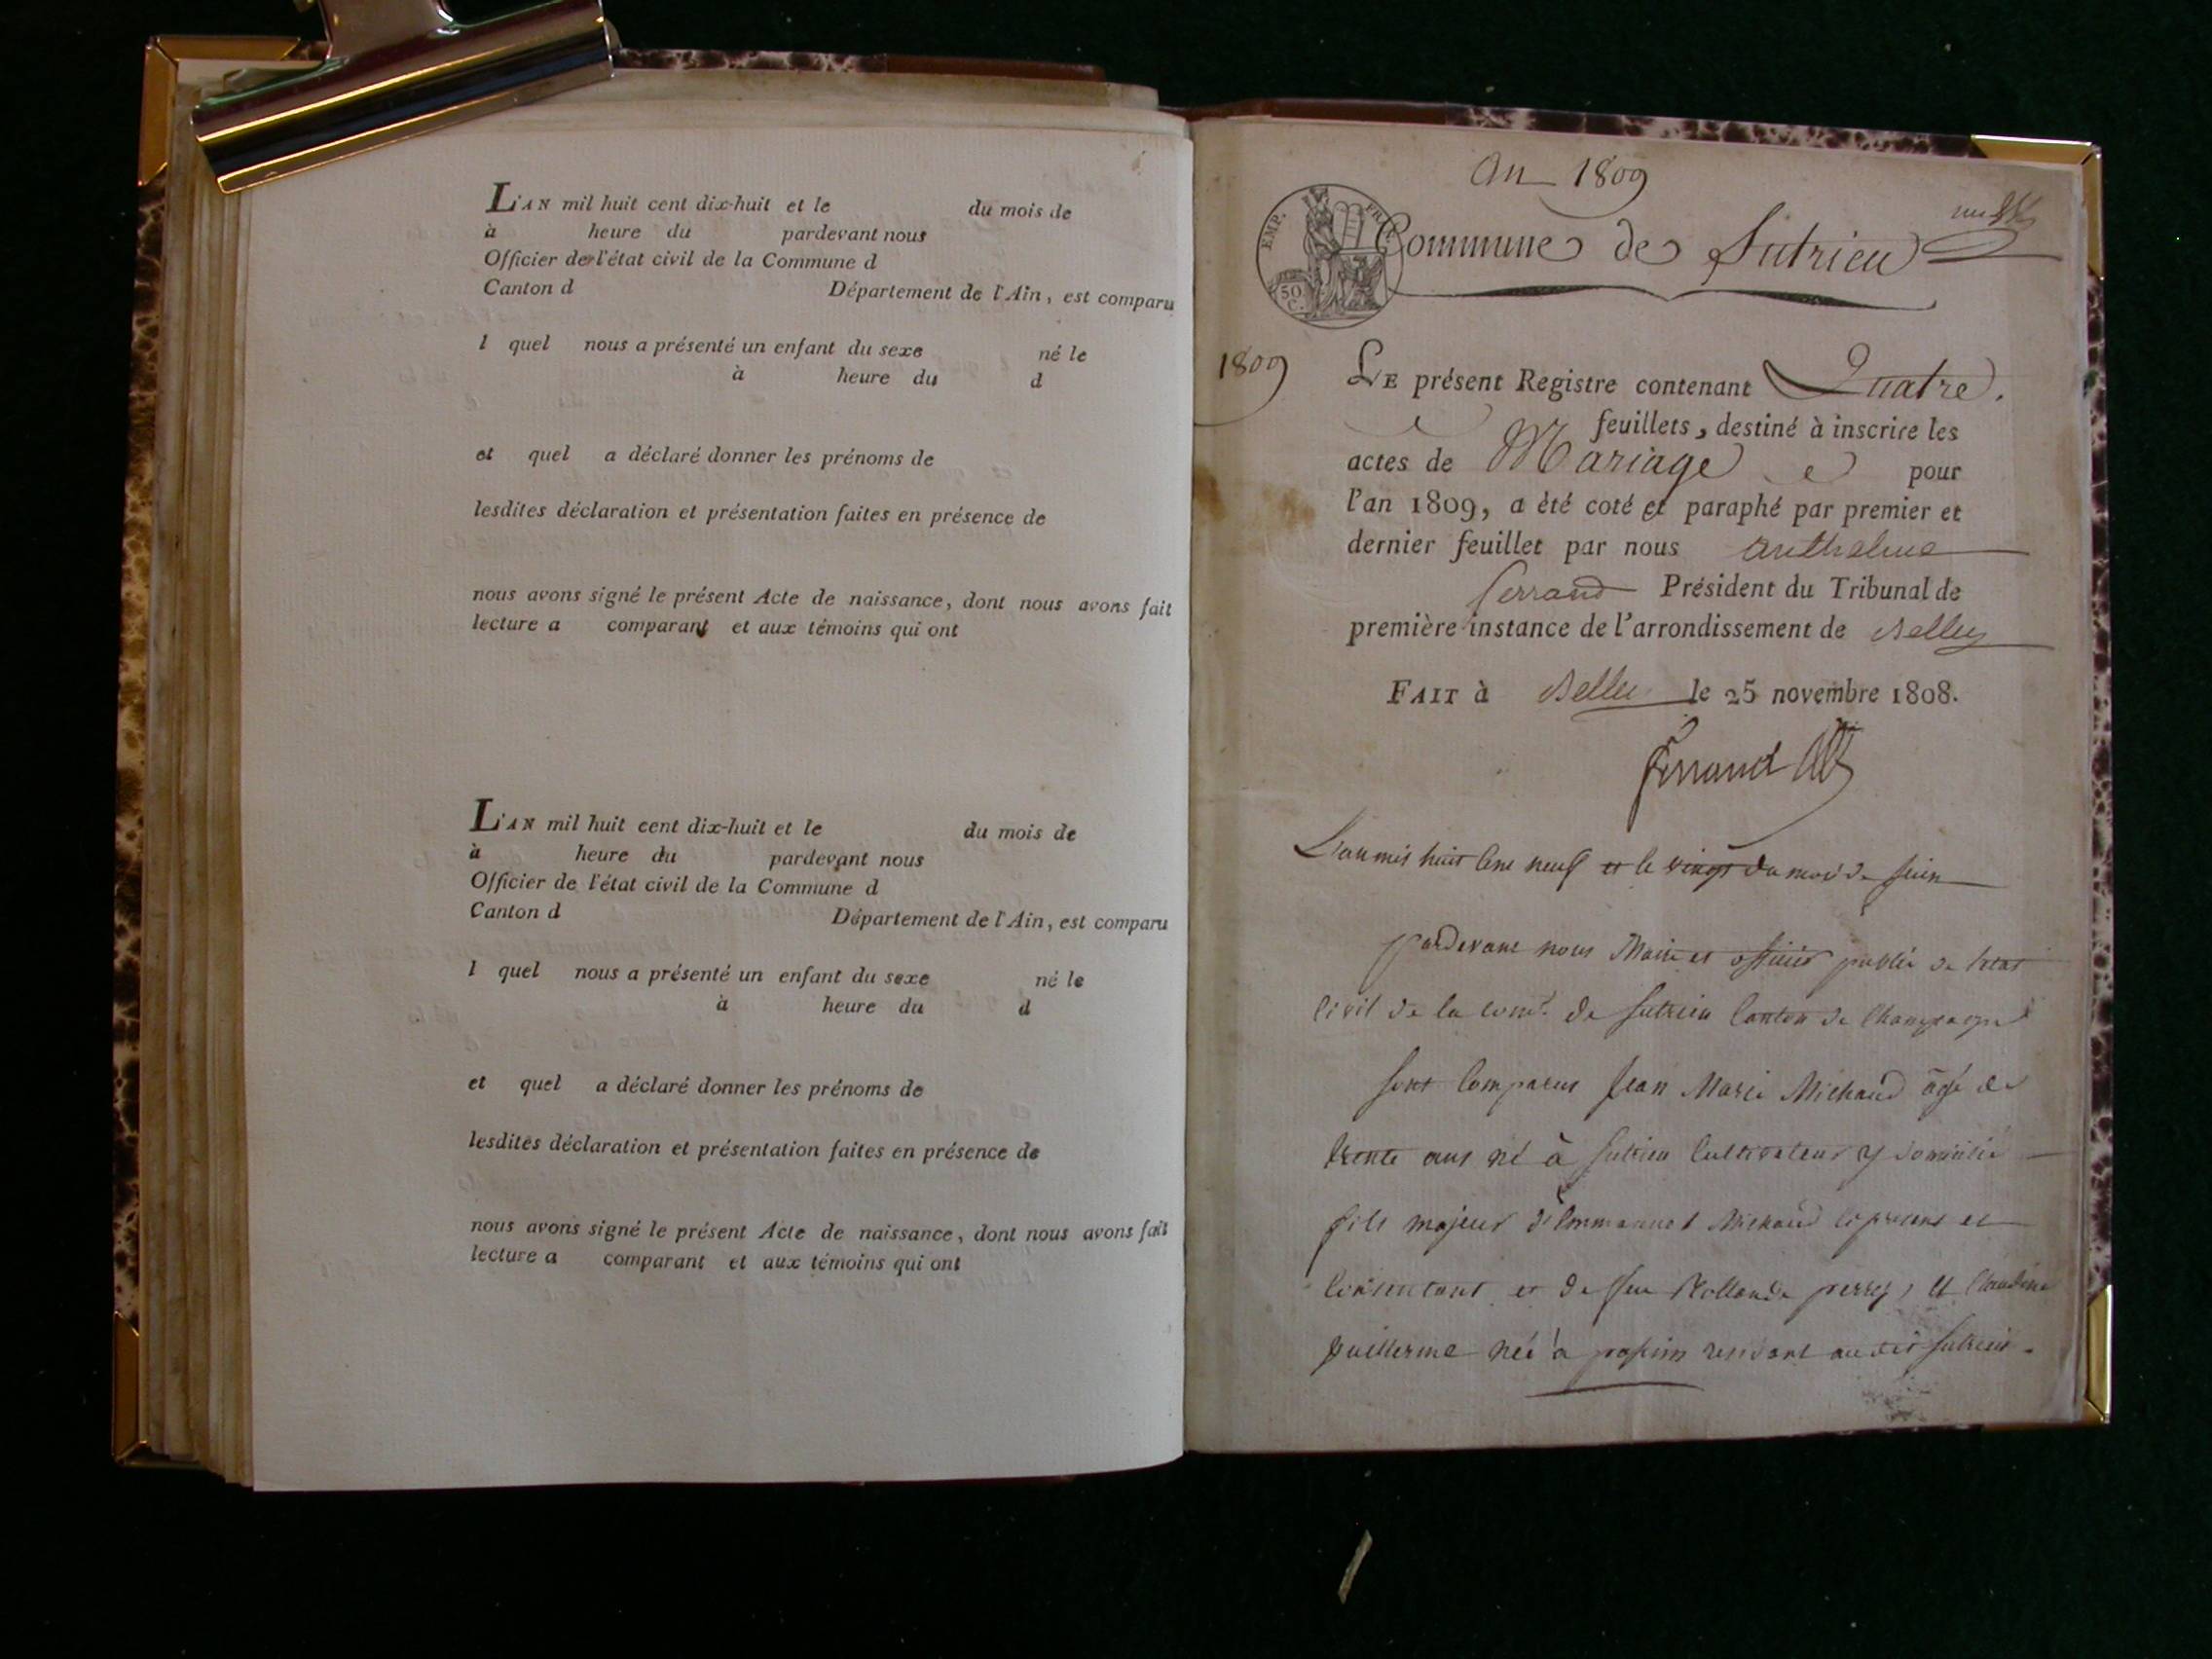 L'AN mil huit cent dix-huit et le du mois de
à heure du pardevant nous
Officier de l'état civil de la Commune d
Canton d Département de l'Ain, est comparu
l quel nous a présenté un enfant du sexe né le
à heure du d
et quel a déclaré donner les prénoms de
lesdites déclaration et présentation faites en présence de
nous avons signé le présent Acte de naissance, dont nous avons fait
lecture a comparant et aux témoins qui ont
L'AN mil huit cent dix-huit et le du mois de
à heure du pardevant nous
Officier de l'état civil de la Commune d
Canton d Département de l'Ain, est comparu
l quel nous a présenté un enfant du sexe né le
à heure du d
et quel a déclaré donner les prénoms de
lesdites déclaration et présentation faites en présence de
nous avons signé le présent Acte de naissance, dont nous avons fait
lecture a comparant et aux témoins qui ont
An 1809
EMP. FR.
50 C.
Commune de Sutrieu
1809
LE présent Registre contenant Quatre
feuillets, destiné à inscrire les
actes de Mariage pour
l'an 1809, a èté coté et paraphé par premier et
dernier feuillet par nous Anthelme
ferrand Président du Tribunal de
première instance de l'arrondissement de Belley
FAIT à Belley le 25 novembre 1808.
ferrand
L'an mil huit cent neuf et le vingt du mois de juin
pardevant nous Maire et officier public de l'etat
civil de la com. de Sutrieu Canton de Champagne
sont comparus Jean Marie Michaud âgé de
trente ans né à Sutrieu Cultivateur y domicilié
fils majeur d'Emmanuel Michaud ci présent et
consentant et de feu perret, et Claudine
guillerme née à résidant audit Sutrieu.